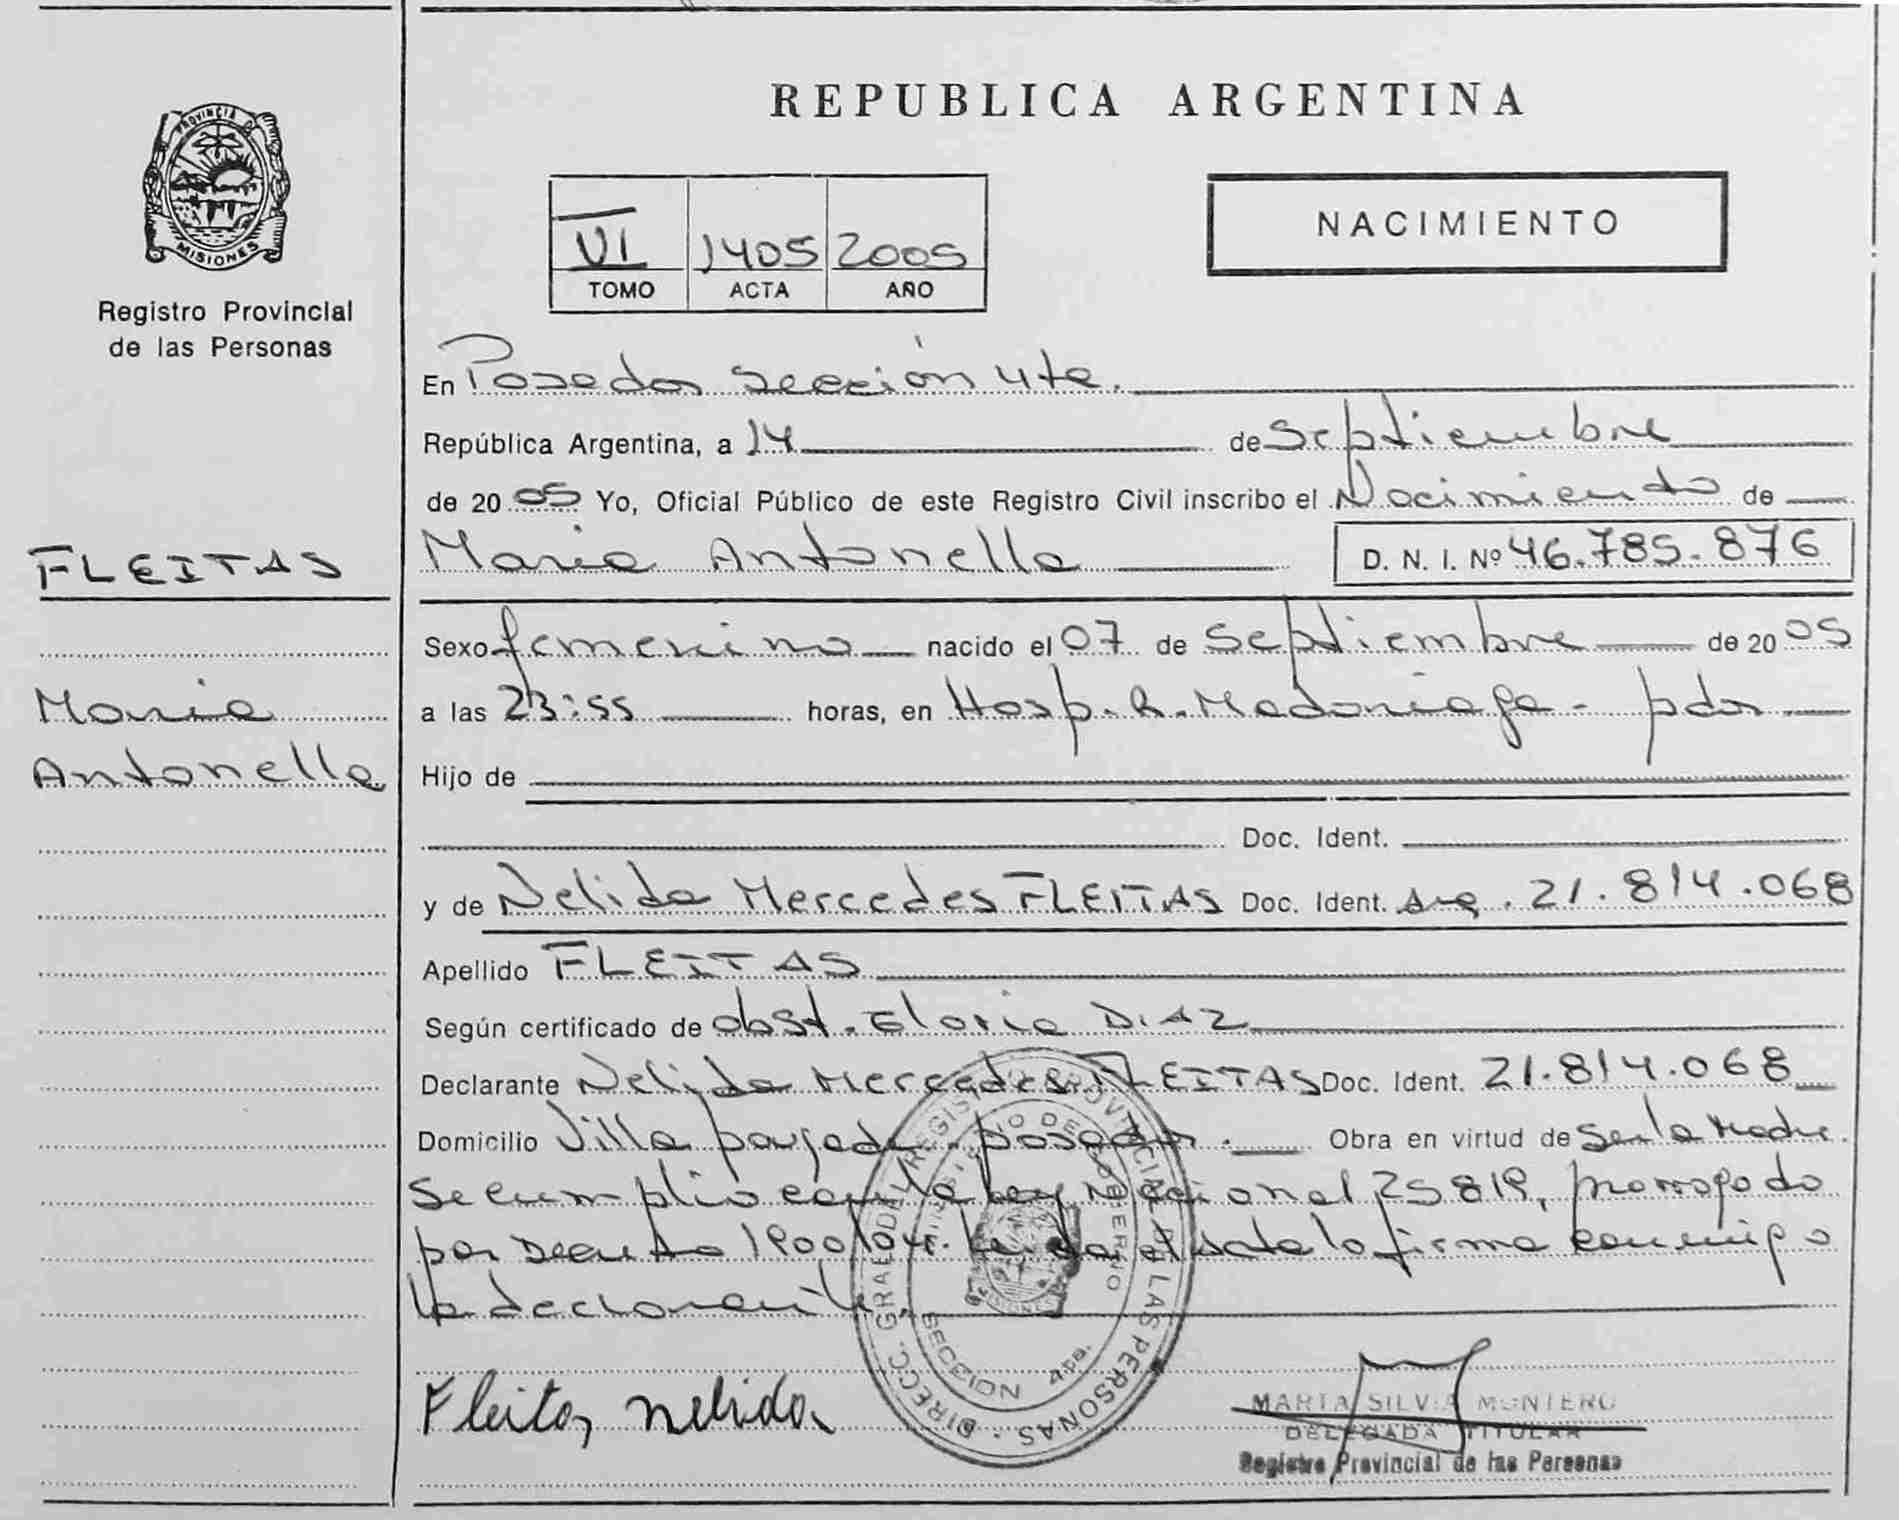 REPUBLICA ARGENTINA
PROVINCIA DE
MISIONES
Registro Provincial
de las Personas
NACIMIENTO
VI 1405 2005
TOMO ACTA AÑO
En Posadas sección 4ta.
República Argentina, a 14 de Septiembre
de 20 05 Yo, Oficial Público de este Registro Civil inscribo el Nacimiento de
FLEITAS
Maria Antonella D. N. I. Nº 46.785.876
Sexo femenino nacido el 07 de Septiembre de 20 05
Maria
a las 23:55 horas, en Hosp. R. Madariaga - pdas
Antonella
Hijo de
Doc. Ident.
y de Nelida Mercedes FLEITAS Doc. Ident. Arg. 21.814.068
Apellido FLEITAS
Según certificado de obst. Gloria DIAZ
Declarante Nelida Mercedes FLEITAS Doc. Ident. 21.814.068
Domicilio Villa posadas. Obra en virtud de Ser la Madre.
Se cumplio con la ley Nacional 25819, prorrogado
por Decreto 1900/04. Leida el acta la firma conmigo
la declarante.
DIRECC. GRAL. DEL REGISTRO PROVINCIAL DE LAS PERSONAS
MINISTERIO DE GOBIERNO
MISIONES
SECCION 4ta.
Fleitas nelida
MARTA SILVIA MONTERO
DELEGADA TITULAR
Registro Provincial de las Personas